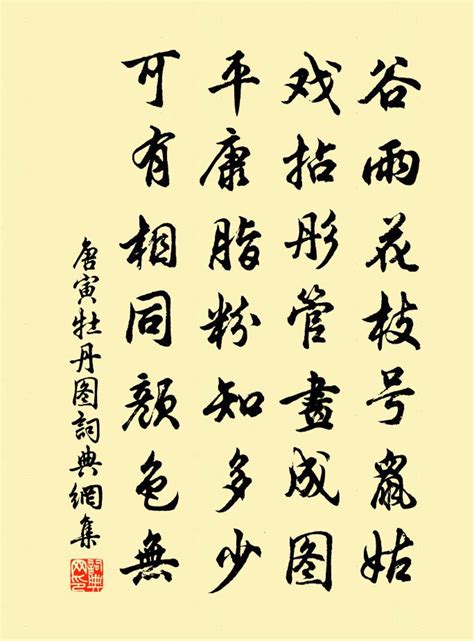 谷雨花枝号鼠姑
戏拈彤管畫成图
平康脂粉知多少
可有相同颜色無
唐寅牡丹图詞典網集